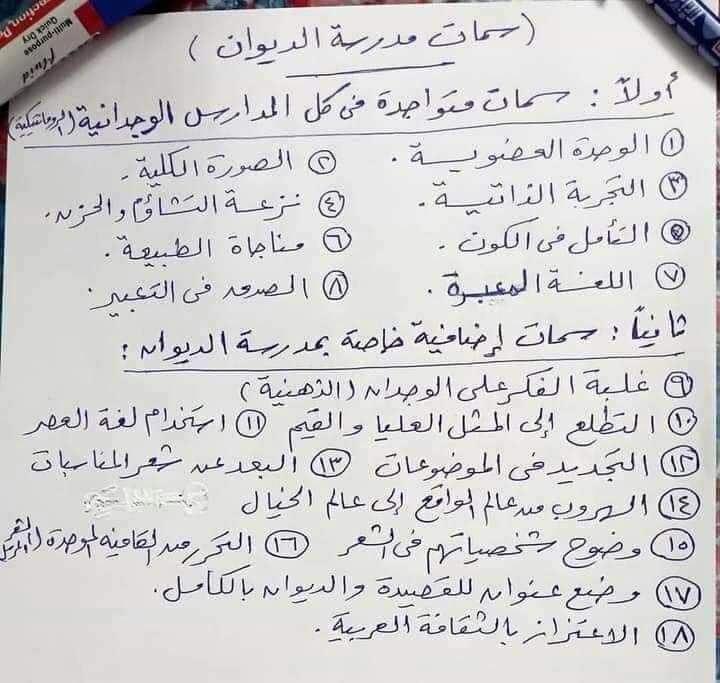 Multi-purpose
Quick Dry
fluid
(سمات مدرسة الديوان)
أولاً: سمات متواجدة في كل المدارس الوجدانية (الرومانتيكية)
١ الوحدة العضوية. ٢ الصورة الكلية.
٣ التجربة الذاتية. ٤ نزعة التشاؤم والحزن.
٥ التأمل في الكون. ٦ مناجاة الطبيعة.
٧ اللغة المعبرة. ٨ الصدق في التعبير.
ثانياً: سمات إضافية خاصة بمدرسة الديوان:
٩ غلبة الفكر على الوجدان (الذهنية)
١٠ التطلع إلى المثل العليا والقيم ١١ استخدام لغة العصر
١٢ التجديد في الموضوعات ١٣ البعد عن شعر المناسبات
١٤ الهروب من عالم الواقع إلى عالم الخيال
١٥ وضوح شخصياتهم في الشعر ١٦ التحرر من القافية الموحدة (الشعر المرسل
١٧ وضع عنوان للقصيدة والديوان بالكامل.
١٨ الاعتزاز بالثقافة العربية.